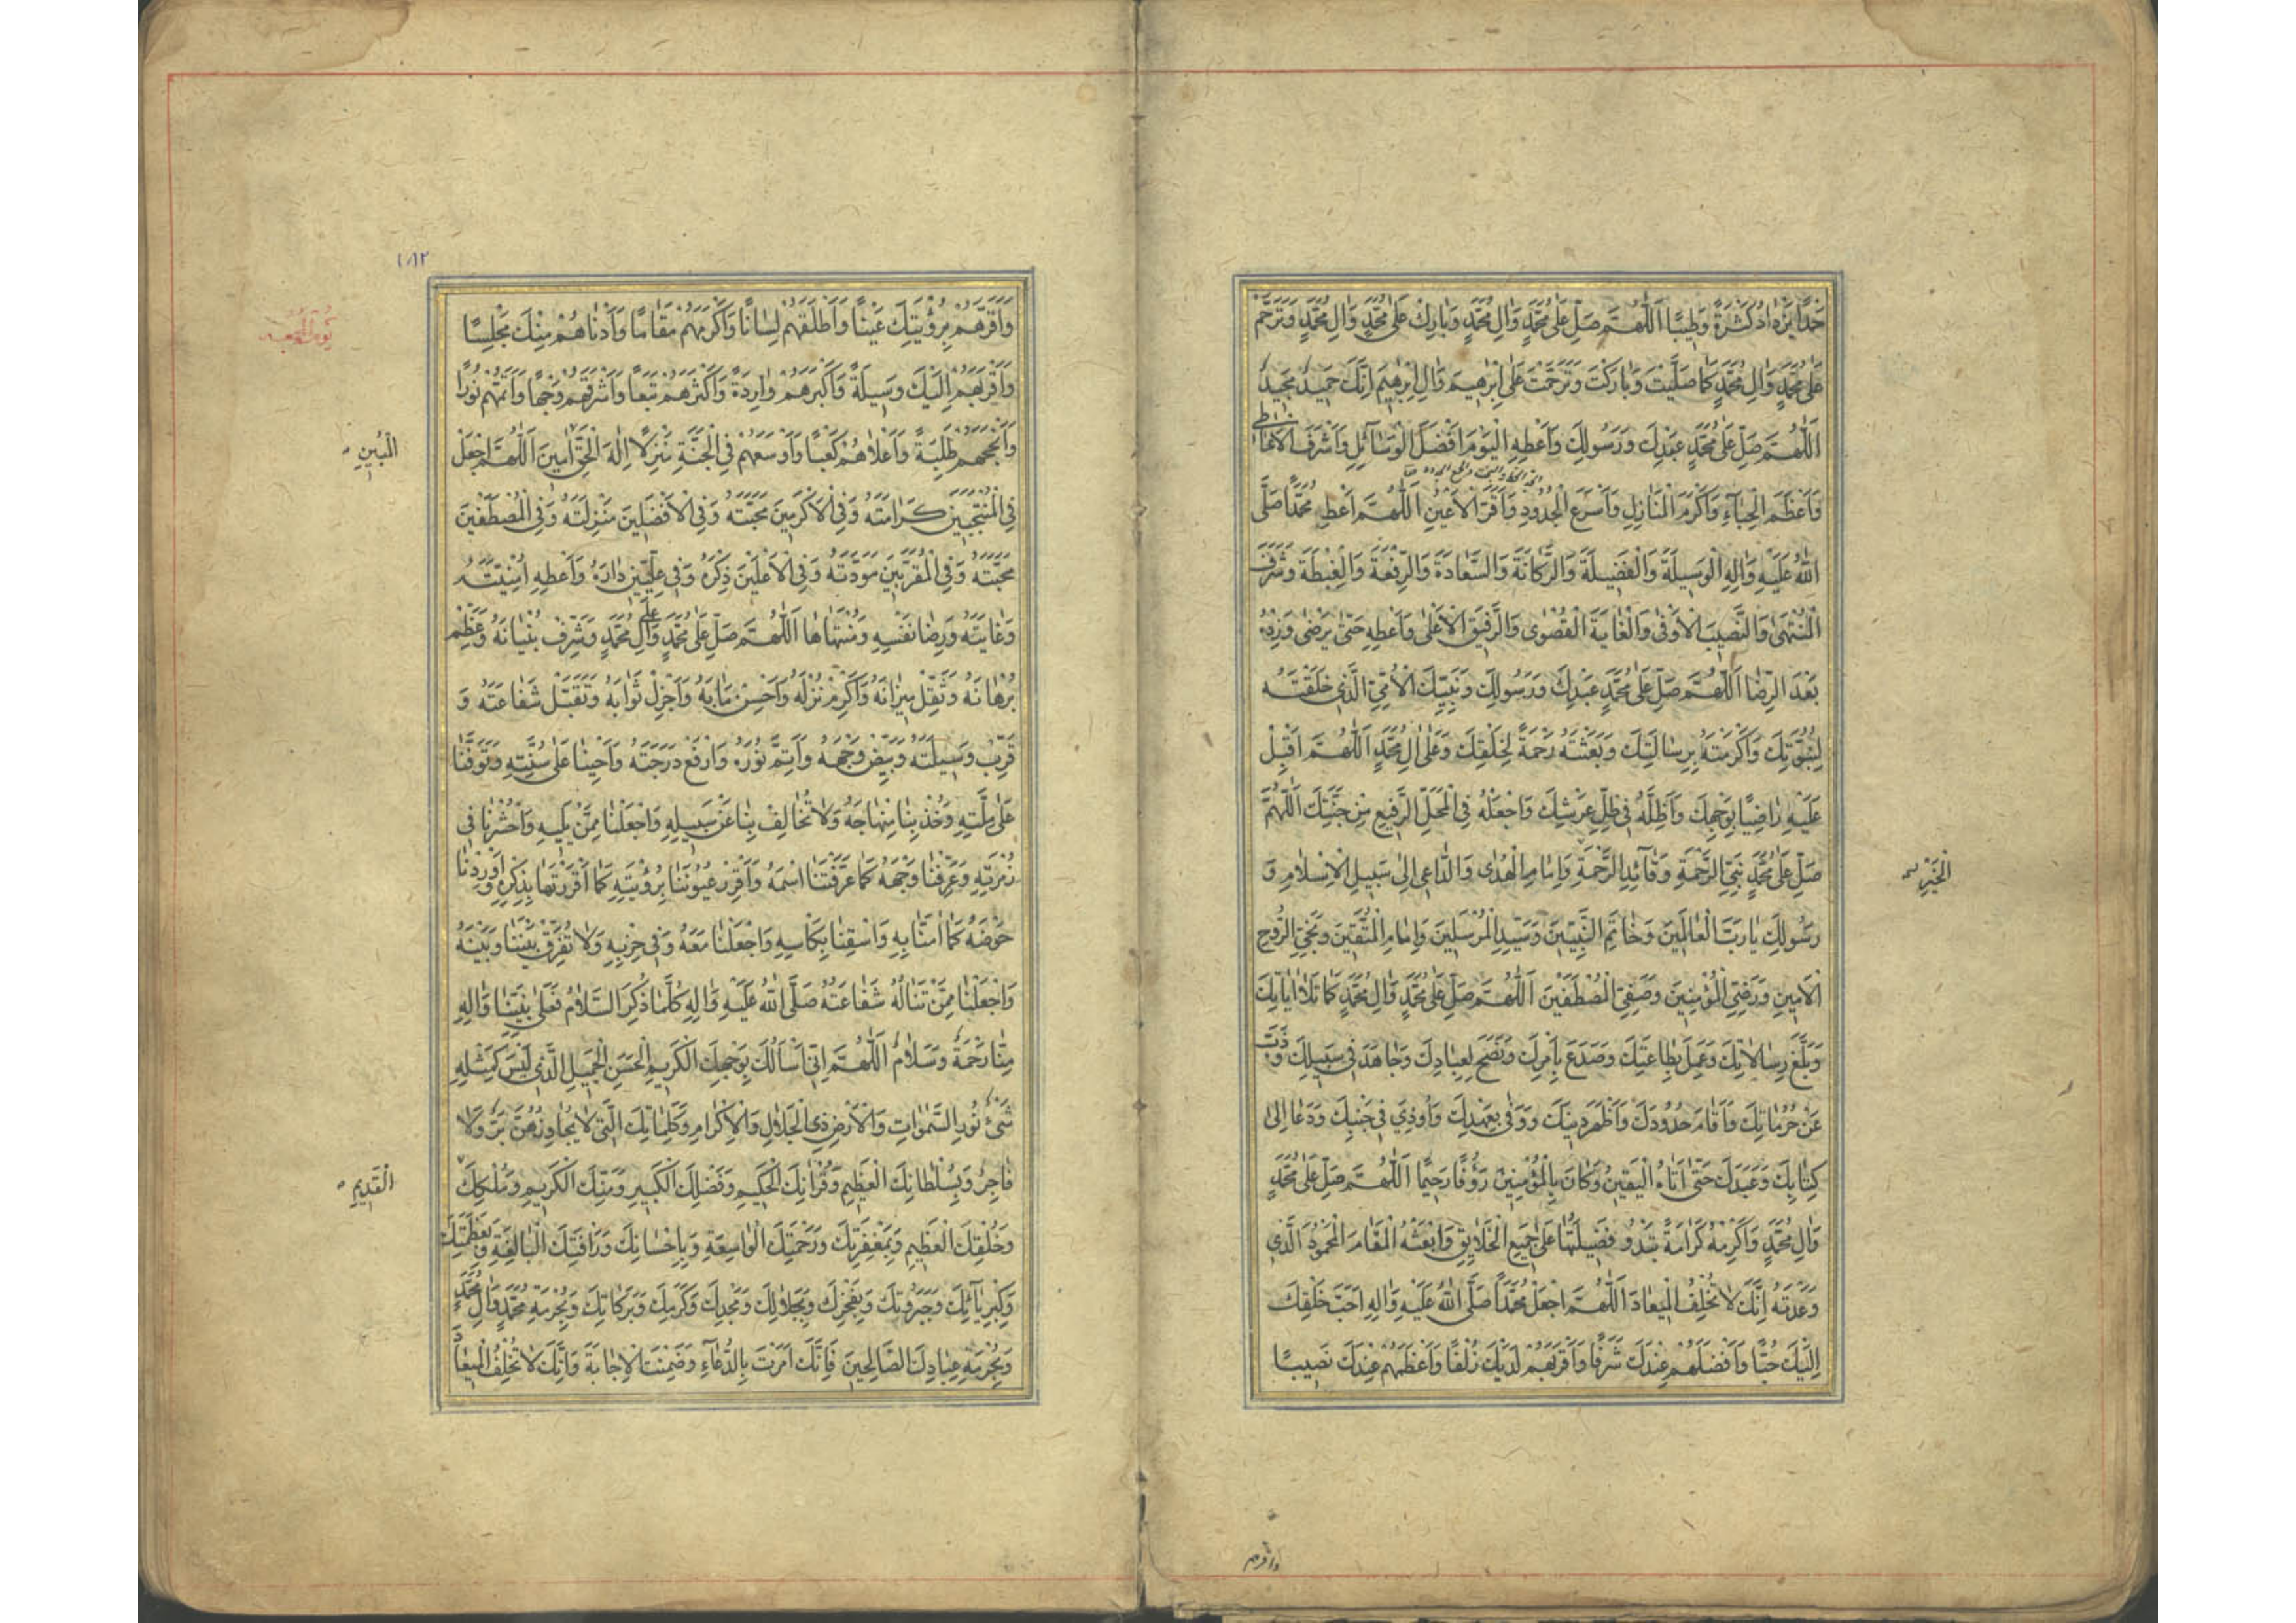 حَمْدًا يَزْدَادُ كَثْرَةً وَطِيبًا اَللّٰهُمَّ صَلِّ عَلٰى مُحَمَّدٍ وَاٰلِ مُحَمَّدٍ وَبَارِكْ عَلٰى مُحَمَّدٍ وَاٰلِ مُحَمَّدٍ وَتَرَحَّمْ
عَلٰى مُحَمَّدٍ وَاٰلِ مُحَمَّدٍ كَمَا صَلَّيْتَ وَبَارَكْتَ وَتَرَحَّمْتَ عَلٰى اِبْرٰهِيمَ وَاٰلِ اِبْرٰهِيمَ اِنَّكَ حَمِيدٌ مَجِيدٌ
اَللّٰهُمَّ صَلِّ عَلٰى مُحَمَّدٍ عَبْدِكَ وَرَسُولِكَ وَاَعْطِهِ الْيَوْمَ اَفْضَلَ الْوَسَائِلِ وَاَشْرَفَ الْاَعَاطِي
وَاَعْظَمَ الْحِبَاءِ وَاَكْرَمَ الْمَنَازِلِ وَاَسْرَعَ الْجُدُودِ وَاَقَرَّ الْاَعْيُنِ اَللّٰهُمَّ اَعْطِ مُحَمَّدًا صَلَّى
اللّٰهُ عَلَيْهِ وَاٰلِهِ الْوَسِيلَةَ وَالْفَضِيلَةَ وَالرَّكَانَةَ وَالسَّعَادَةَ وَالرِّفْعَةَ وَالْغِبْطَةَ وَشَرَفَ
الْمُنْتَهٰى وَالنَّصِيبَ الْاَوْفٰى وَالْغَايَةَ الْقُصْوٰى وَالرَّفِيقَ الْاَعْلٰى وَاَعْطِهِ حَتّٰى يَرْضٰى وَزِدْهُ
بَعْدَ الرِّضَا اَللّٰهُمَّ صَلِّ عَلٰى مُحَمَّدٍ عَبْدِكَ وَرَسُولِكَ وَنَبِيِّكَ الْاُمِّيِّ الَّذِي خَلَقْتَهُ
لِنُبُوَّتِكَ وَاَكْرَمْتَهُ بِرِسَالَتِكَ وَبَعَثْتَهُ رَحْمَةً لِخَلْقِكَ وَعَلٰى اٰلِ مُحَمَّدٍ اَللّٰهُمَّ اَقْبِلْ
عَلَيْهِ رَاضِيًا بِوَجْهِكَ وَاَظِلَّهُ فِي ظِلِّ عَرْشِكَ وَاجْعَلْهُ فِي الْمَحَلِّ الرَّفِيعِ مِنْ جَنَّتِكَ اَللّٰهُمَّ
صَلِّ عَلٰى مُحَمَّدٍ نَبِيِّ الرَّحْمَةِ وَقَائِدِ الرَّحْمَةِ وَاِمَامِ الْهُدٰى وَالدَّاعِي اِلٰى سَبِيلِ الْاِسْلَامِ وَ
الْخَيْرِ
رَسُولِكَ يَا رَبَّ الْعَالَمِينَ وَخَاتَمِ النَّبِيِّينَ وَسَيِّدِ الْمُرْسَلِينَ وَاِمَامِ الْمُتَّقِينَ وَنَجِيِّ الرُّوحِ
الْاَمِينِ وَرَضِيِّ الْمُؤْمِنِينَ وَصَفِيِّ الْمُصْطَفَيْنَ اَللّٰهُمَّ صَلِّ عَلٰى مُحَمَّدٍ وَاٰلِ مُحَمَّدٍ كَمَا تَلَا اٰيَاتِكَ
وَبَلَّغَ رِسَالَاتِكَ وَعَمِلَ بِطَاعَتِكَ وَصَدَعَ بِاَمْرِكَ وَنَصَحَ لِعِبَادِكَ وَجَاهَدَ فِي سَبِيلِكَ وَذَبَّ
عَنْ حُرُمَاتِكَ وَاَقَامَ حُدُودَكَ وَاَظْهَرَ دِينَكَ وَوَفٰى بِعَهْدِكَ وَاُوذِيَ فِي جَنْبِكَ وَدَعَا اِلٰى
كِتَابِكَ وَعَبَدَكَ حَتّٰى اَتَاهُ الْيَقِينُ وَكَانَ بِالْمُؤْمِنِينَ رَؤُفًا رَحِيمًا اَللّٰهُمَّ صَلِّ عَلٰى مُحَمَّدٍ
وَاٰلِ مُحَمَّدٍ وَاَكْرِمْهُ كَرَامَةً تَبْدُو فَضِيلَتُهَا عَلٰى جَمِيعِ الْخَلَايِقِ وَابْعَثْهُ الْمَقَامَ الْمَحْمُودَ الَّذِي
وَعَدْتَهُ اِنَّكَ لَا تُخْلِفُ الْمِيعَادَ اَللّٰهُمَّ اجْعَلْ مُحَمَّدًا صَلَّى اللّٰهُ عَلَيْهِ وَاٰلِهِ اَحَبَّ خَلْقِكَ
اِلَيْكَ حُبًّا وَاَفْضَلَهُمْ عِنْدَكَ شَرَفًا وَاَقْرَبَهُمْ لَدَيْكَ زُلْفًا وَاَعْظَمَهُمْ عِنْدَكَ نَصِيبًا
وَاَقَرَّهُمْ
١٨٢
يوم الجمعه
وَاَقَرَّهُمْ بِرُؤْيَتِكَ عَيْنًا وَاَطْلَقَهُمْ لِسَانًا وَاَكْرَمَهُمْ مَقَامًا وَاَدْنَاهُمْ مِنْكَ مَجْلِسًا
وَاَقْرَبَهُمْ اِلَيْكَ وَسِيلَةً وَاَكْبَرَهُمْ وَارِدَةً وَاَكْثَرَهُمْ تَبَعًا وَاَشْرَقَهُمْ وَجْهًا وَاَتَمَّهُمْ نُورًا
وَاَنْجَحَهُمْ طَلِبَةً وَاَعْلَاهُمْ كَعْبًا وَاَوْسَعَهُمْ فِي الْجَنَّةِ مَنْزِلًا اِلٰهَ الْحَقِّ اٰمِينَ اَللّٰهُمَّ اجْعَلْ
الْمُبِينِ
فِي الْمُنْتَجَبِينَ كَرَامَتَهُ وَفِي الْاَكْرَمِينَ مَحَبَّتَهُ وَفِي الْاَفْضَلِينَ مَنْزِلَتَهُ وَفِي الْمُصْطَفَيْنَ
مَحَبَّتَهُ وَفِي الْمُقَرَّبِينَ مَوَدَّتَهُ وَفِي الْاَعْلَيْنَ ذِكْرَهُ وَفِي عِلِّيِّينَ دَارَهُ وَاَعْطِهِ اُمْنِيَّتَهُ
وَغَايَتَهُ وَرِضَا نَفْسِهِ وَمُنْتَهَاهَا اَللّٰهُمَّ صَلِّ عَلٰى مُحَمَّدٍ وَعَلٰى اٰلِ مُحَمَّدٍ وَشَرِّفْ بُنْيَانَهُ وَعَظِّمْ
بُرْهَانَهُ وَثَقِّلْ مِيزَانَهُ وَاَكْرِمْ نُزُلَهُ وَاَحْسِنْ مَاٰبَهُ وَاَجْزِلْ ثَوَابَهُ وَتَقَبَّلْ شَفَاعَتَهُ وَ
قَرِّبْ وَسِيلَتَهُ وَبَيِّضْ وَجْهَهُ وَاَتِمَّ نُورَهُ وَارْفَعْ دَرَجَتَهُ وَاَحْيِنَا عَلٰى سُنَّتِهِ وَتَوَفَّنَا
عَلٰى مِلَّتِهِ وَخُذْ بِنَا مِنْهَاجَهُ وَلَا تُخَالِفْ بِنَا عَنْ سَبِيلِهِ وَاجْعَلْنَا مِمَّنْ يَلِيهِ وَاحْشُرْنَا فِي
زُمْرَتِهِ وَعَرِّفْنَا وَجْهَهُ كَمَا عَرَّفْتَنَا اسْمَهُ وَاَقْرِرْ عُيُونَنَا بِرُؤْيَتِهِ كَمَا اَقْرَرْتَهَا بِذِكْرِهِ وَاَوْرِدْنَا
حَوْضَهُ كَمَا اٰمَنَّا بِهِ وَاسْقِنَا بِكَاْسِهِ وَاجْعَلْنَا مَعَهُ وَفِي حِزْبِهِ وَلَا تُفَرِّقْ بَيْنَنَا وَبَيْنَهُ
وَاجْعَلْنَا مِمَّنْ تَنَالُهُ شَفَاعَتُهُ صَلَّى اللّٰهُ عَلَيْهِ وَاٰلِهِ كُلَّمَا ذُكِرَ السَّلَامُ فَعَلٰى نَبِيِّنَا وَاٰلِهِ
مِنَّا رَحْمَةٌ وَسَلَامٌ اَللّٰهُمَّ اِنِّي اَسْاَلُكَ بِوَجْهِكَ الْكَرِيمِ الْحَسَنِ الْجَمِيلِ الَّذِي لَيْسَ كَمِثْلِهِ
شَيْءٌ نُورِ السَّمٰوَاتِ وَالْاَرْضِ ذِي الْجَلَالِ وَالْاِكْرَامِ وَكَلِمَاتِكَ الَّتِي لَا يُجَاوِزُهُنَّ بَرٌّ وَلَا
فَاجِرٌ وَبِسُلْطَانِكَ الْعَظِيمِ وَقُرْاٰنِكَ الْحَكِيمِ وَفَضْلِكَ الْكَبِيرِ وَمَنِّكَ الْكَرِيمِ وَمُلْكِكَ
الْقَدِيمِ
وَخَلْقِكَ الْعَظِيمِ وَبِمَغْفِرَتِكَ وَرَحْمَتِكَ الْوَاسِعَةِ وَبِاِحْسَانِكَ وَرَاْفَتِكَ الْبَالِغَةِ وَبِعَظَمَتِكَ
وَكِبْرِيَائِكَ وَجَبَرُوتِكَ وَبِفَخْرِكَ وَبِجَلَالِكَ وَمَجْدِكَ وَكَرَمِكَ وَبَرَكَاتِكَ وَبِحُرْمَةِ مُحَمَّدٍ وَاٰلِ مُحَمَّدٍ
وَبِحُرْمَةِ عِبَادِكَ الصَّالِحِينَ فَاِنَّكَ اَمَرْتَ بِالدُّعَاءِ وَضَمِنْتَ الْاِجَابَةَ وَاِنَّكَ لَا تُخْلِفُ الْمِيعَادَ